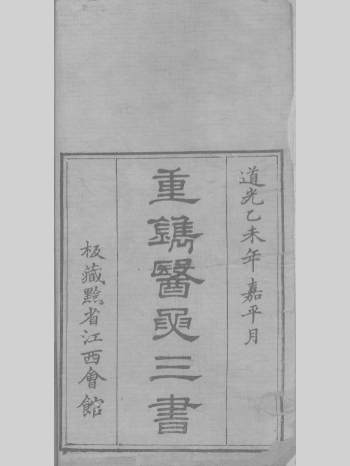 道光乙未年嘉平月
重鐫醫三書
板藏黔省江西會館